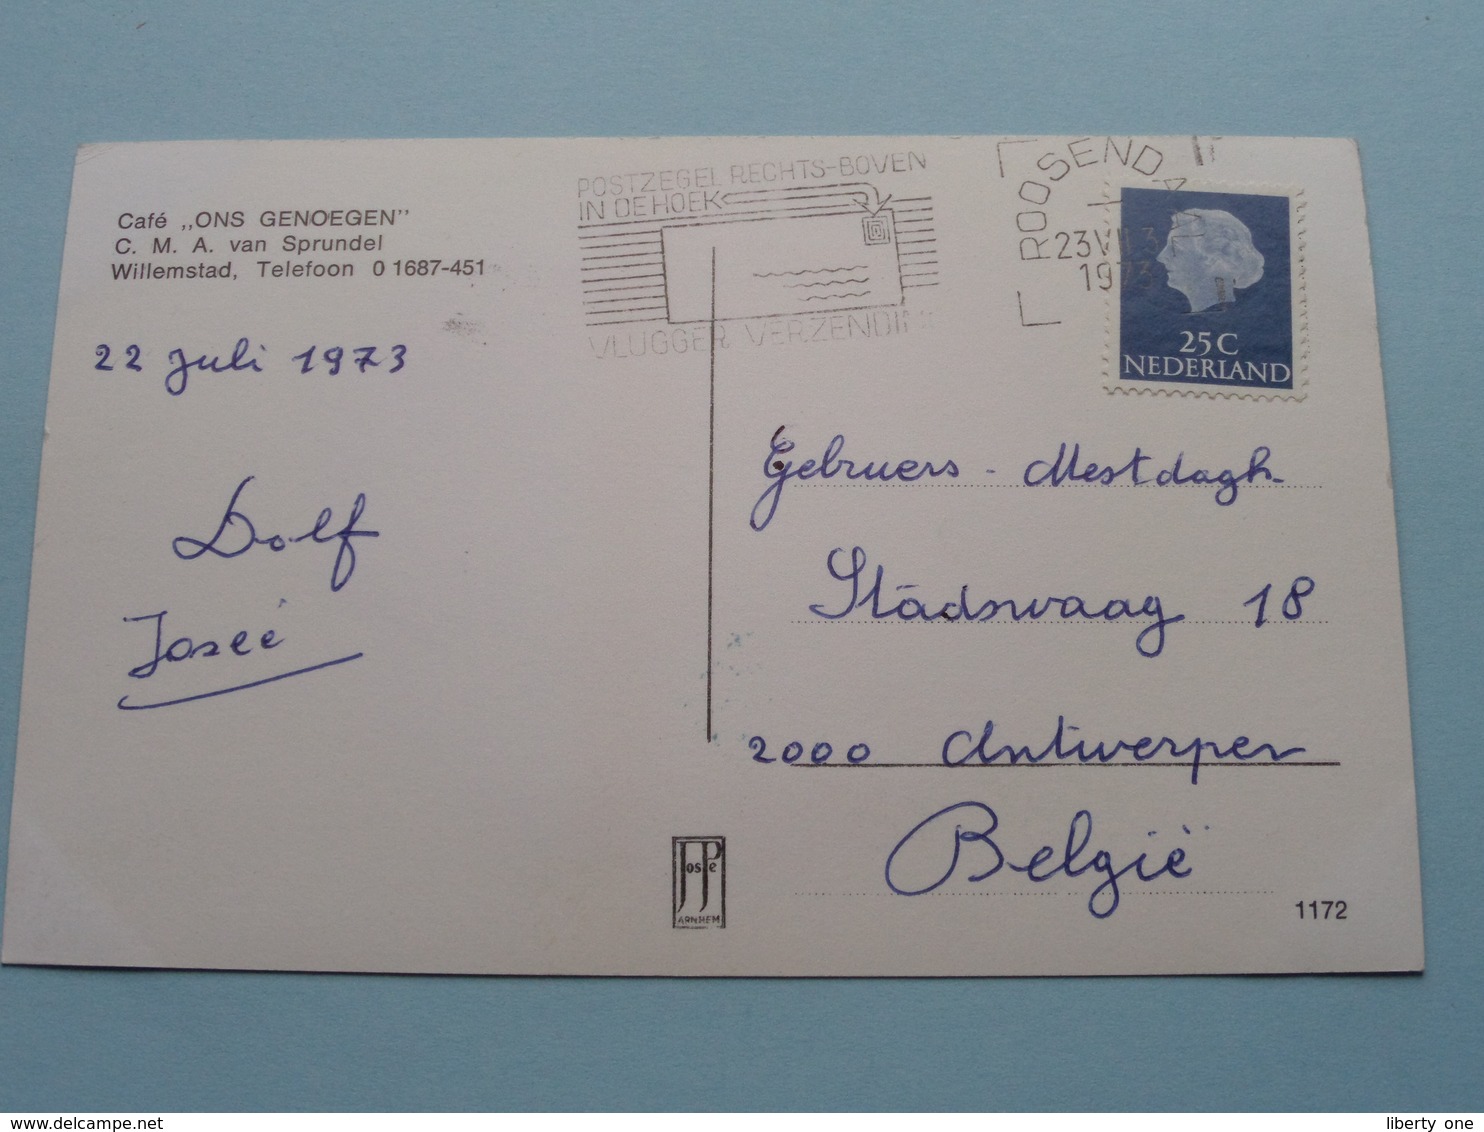 Café „ONS GENOEGEN”
C. M. A. van Sprundel
Willemstad, Telefoon 0 1687-451
22 juli 1973
Dolf
Josée
POSTZEGEL RECHTS-BOVEN
IN DE HOEK
VLUGGER VERZENDIN
ROOSENDA
23 VII
1973
25 C
NEDERLAND
Gebruers - Mestdagh
Stadswaag 18
2000 Antwerpen
België
JosPe
ARNHEM
1172
www.delcampe.net
liberty one